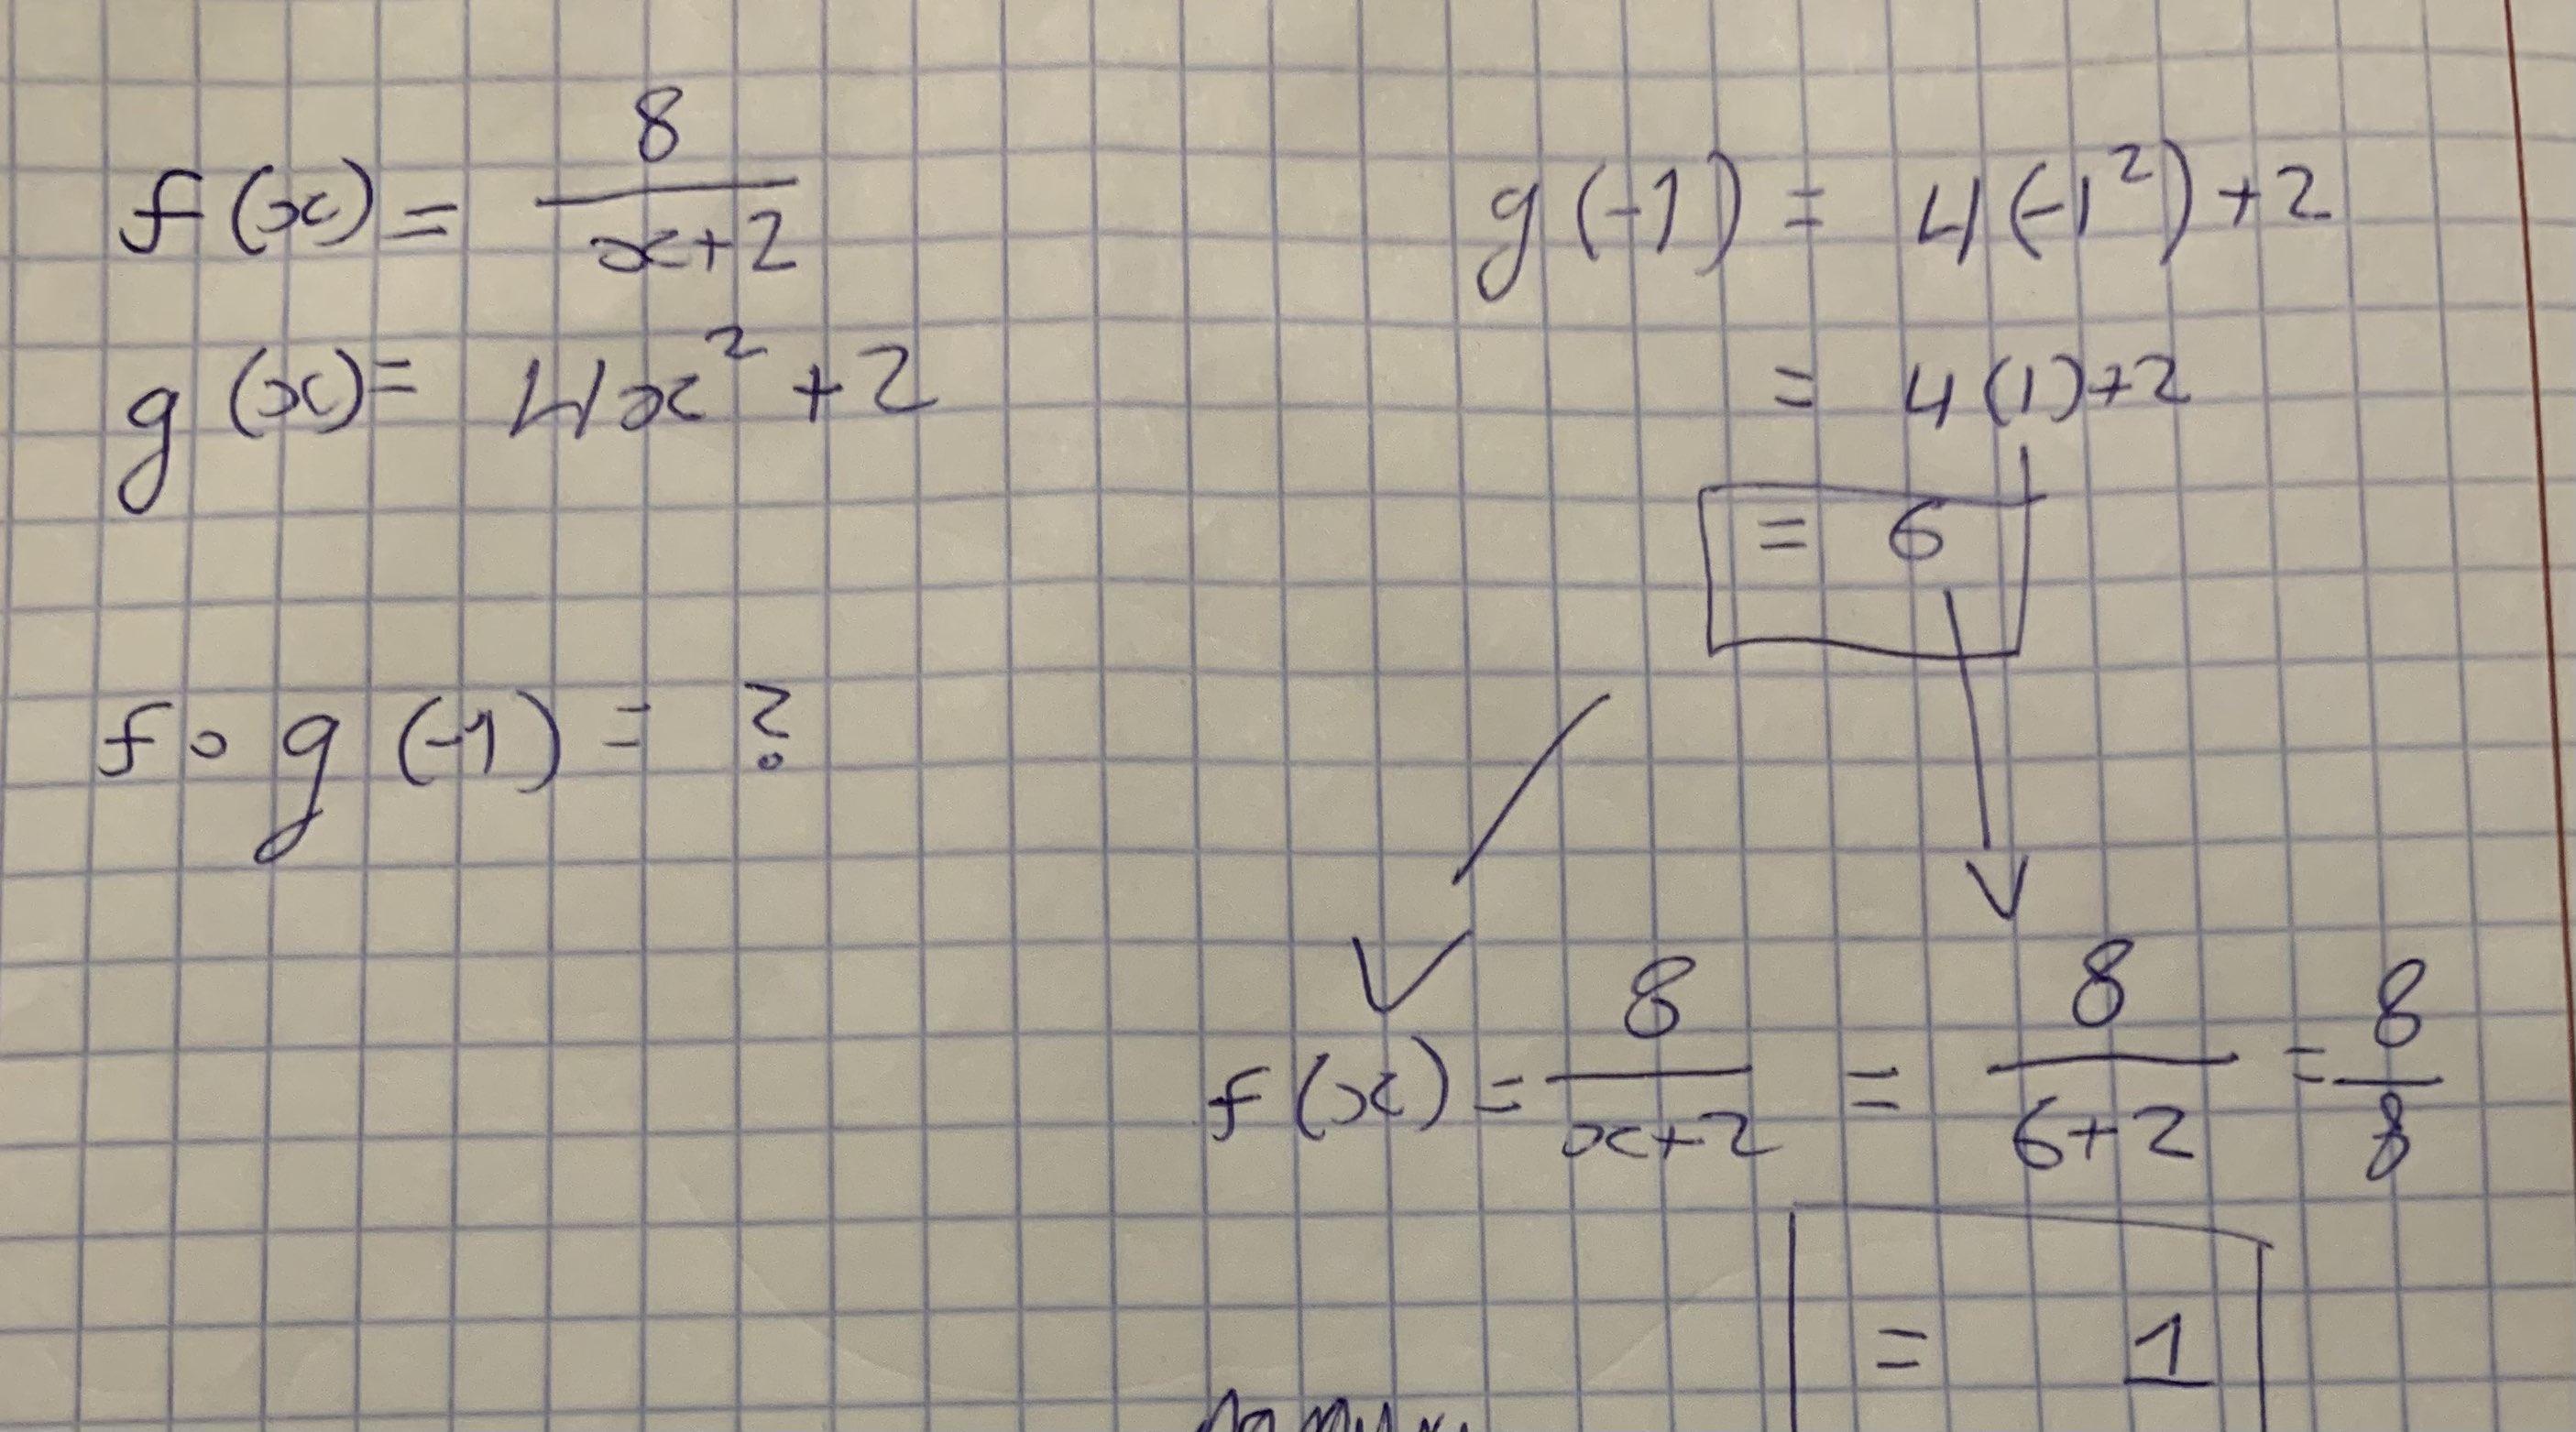 f(x) = 8/(x+2)
g(x) = 4x² + 2
f∘g (-1) = ?
g(-1) = 4(-1²)+2
= 4(1)+2
= 6
f(x) = 8/(x+2) = 8/(6+2) = 8/8
= 1